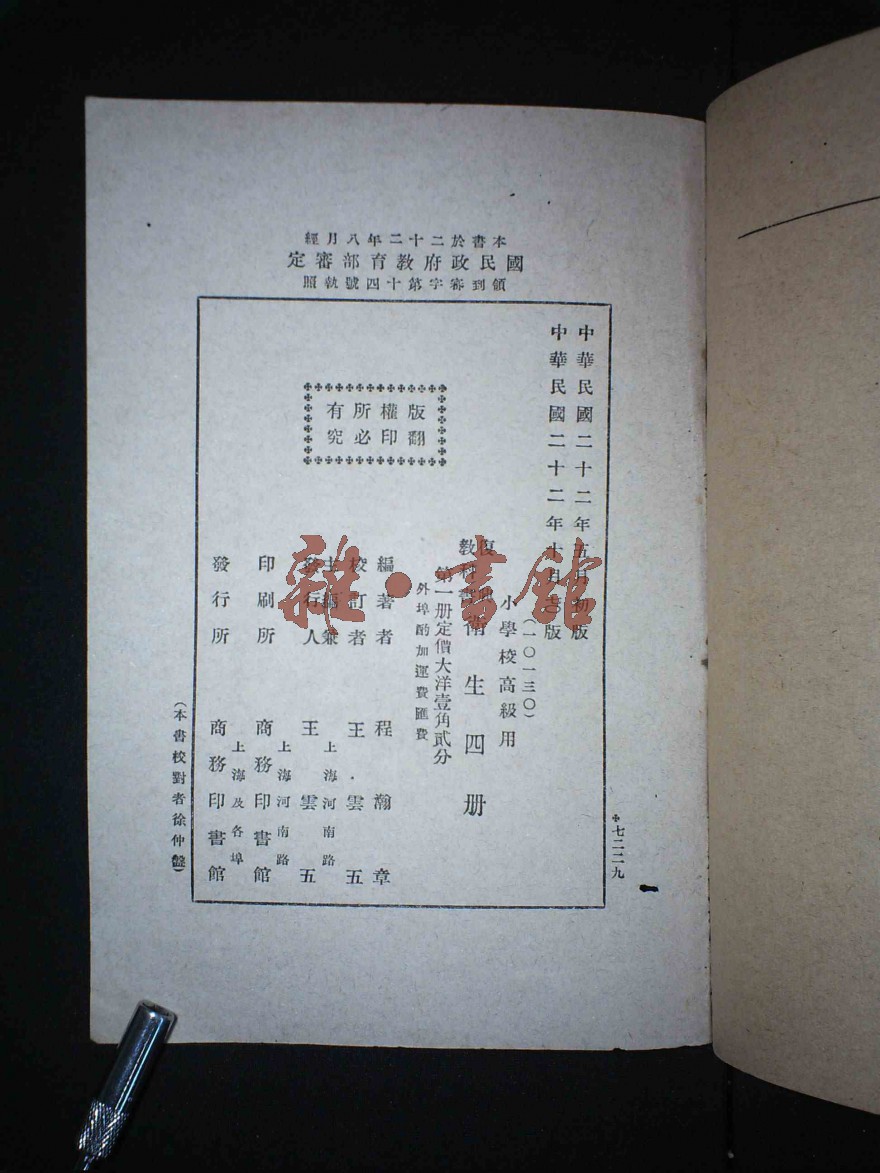 本書於二十二年八月經
國民政府教育部審定
領到審字第十四號執照
中華民國二十二年五月初版
中華民國二十二年十月 版
版權所有
翻印必究
(一〇一三〇)
小學校高級用
復 教科書 衛生四册
第一册定價大洋壹角貳分
外埠酌加運費匯費
編著者 程瀚章
校訂者 王雲五
主編兼發行人 王雲五
上海河南路
印刷所 商務印書館
上海河南路
發行所 商務印書館
上海及各埠
(本書校對者徐仲盤)
七二二九
雜·書館